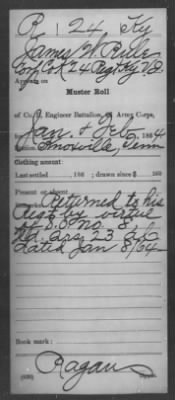 R 24 Ky
James W. Rule
Co. K 24 Regt. Ky. V.
Appears on
Muster Roll
of Co. Engineer Battalion, 23 Army Corps,
Jan. & Feb., 1864.
Knoxville, Tenn
Clothing amount:
Last settled , 186 ; drawn since $ 100
Present or absent
Returned to his
Regt by virtue
of S.O. No. 8,
Hd. Qrs. 23 A.C.
dated Jan 8/64
Book mark:
Ragan
Copyist.